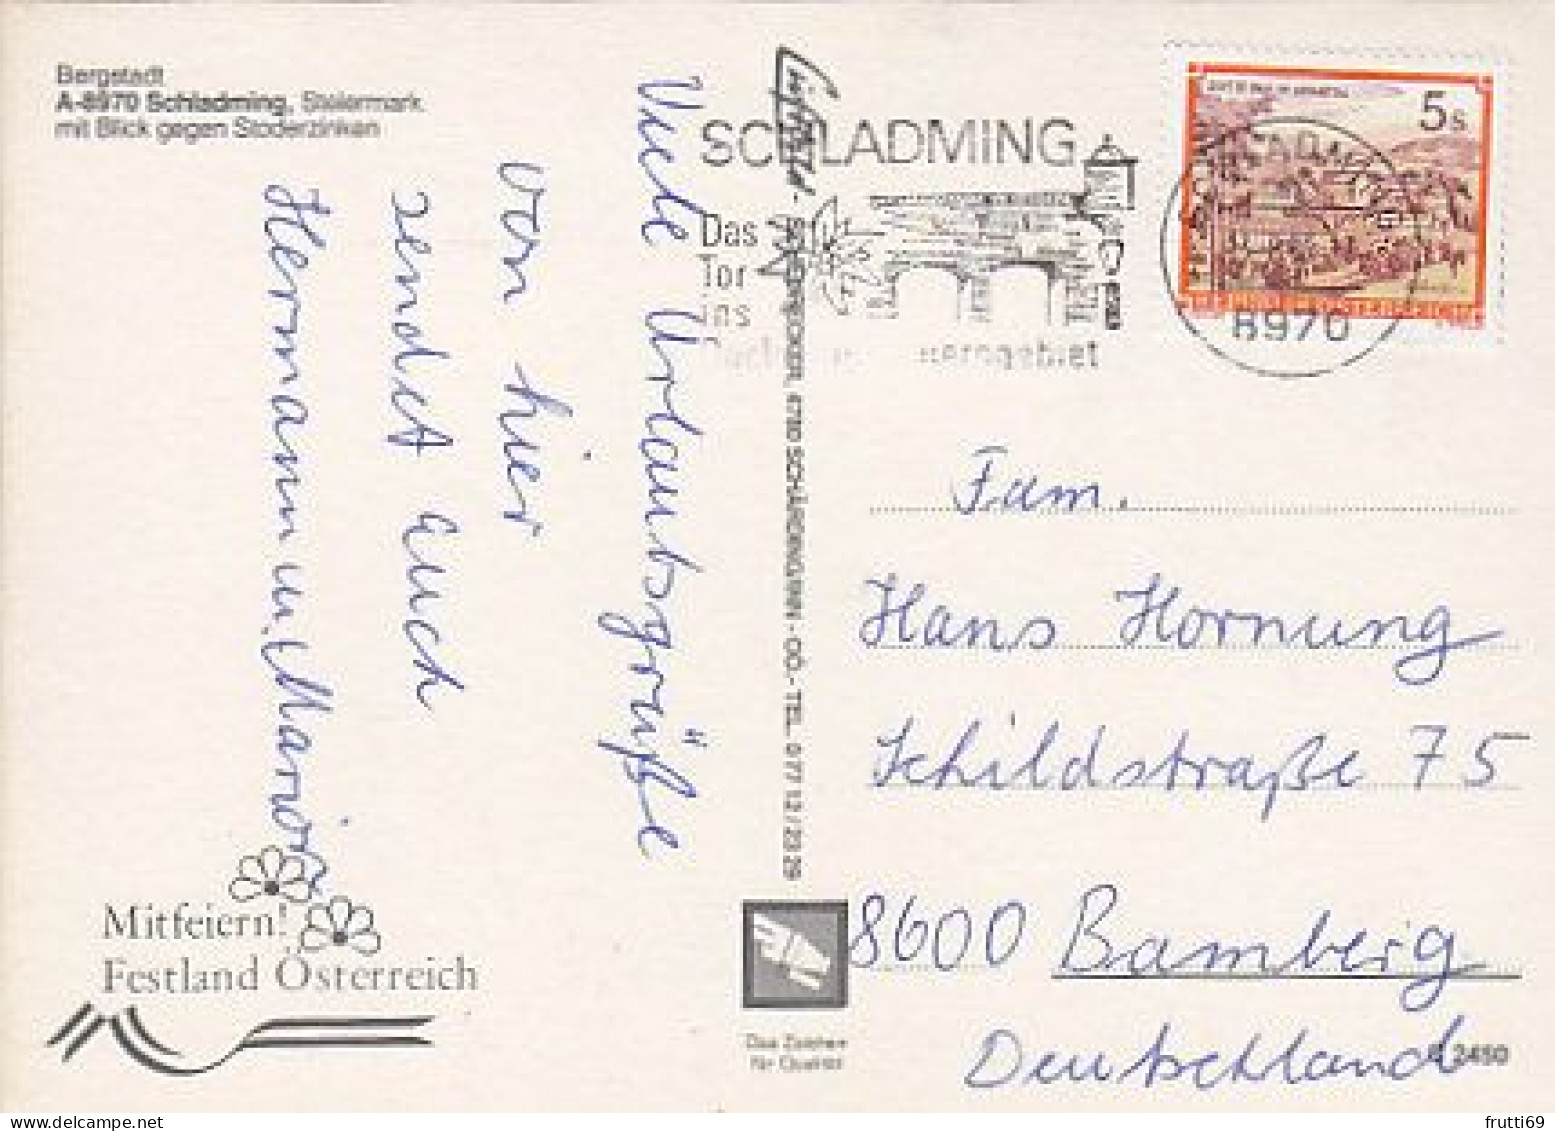 Bergstadt
A-8970 Schladming, Steiermark
mit Blick gegen Stoderzinken
Viele Urlaubsgrüße
von hier
sendet Euch
Hermann u. Marion
Mitfeiern!
Festland Österreich
SCHÄRDING/INN - OÖ. - TEL. 0 77 12 / 23 29
Das Zeichen
für Qualität
SCHLADMING
Das
Tor
ins
5 s
8970
Fam.
Hans Hornung
Schildstraße 75
8600 Bamberg
Deutschland
2450
frutti69